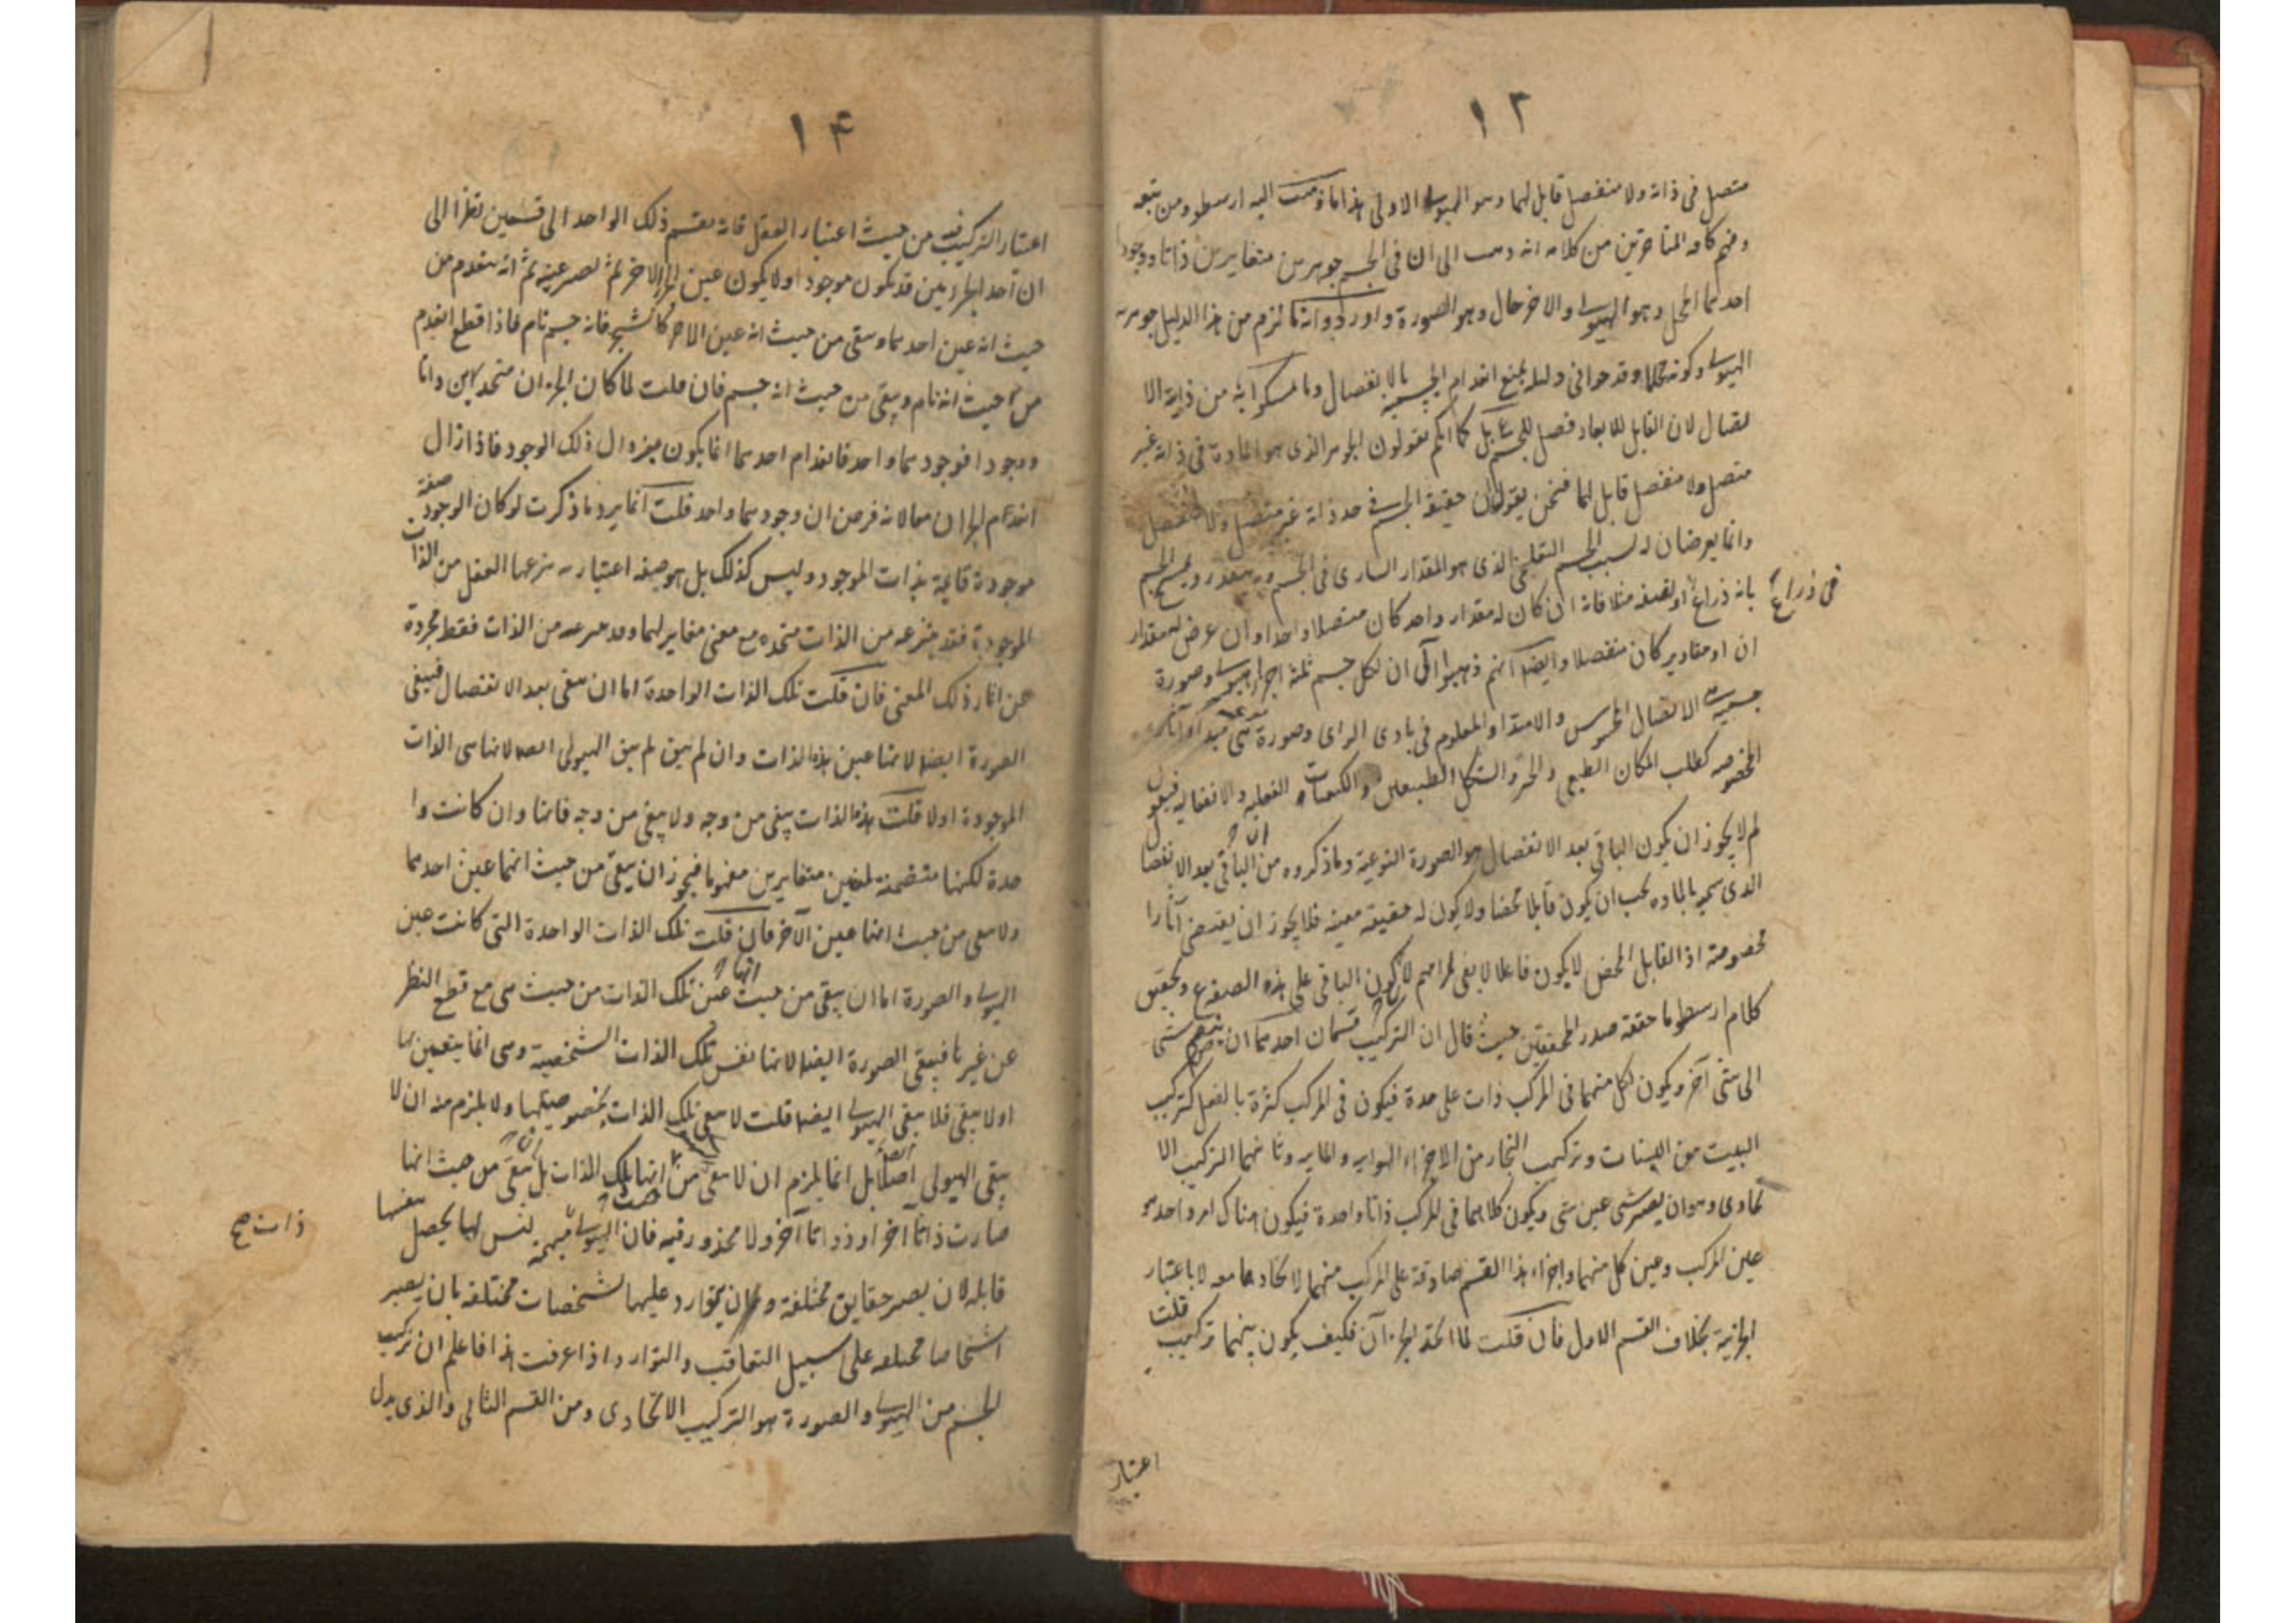 ١٣
متصل فى ذاته ولا منفصل قابل لهما وهو الهيولى الاولى هذا ما ذهب اليه ارسطو ومن تبعه
وفهم كافه المتاخرين من كلامه انه ذهب الى ان فى الجسم جوهرين متغايرين ذاتا ووجودا
احدهما المحل وهو الهيولى والاخر حال وهو الصورة واوردوا انه لزم من هذا الدليل جوهرية
الهيولى وكونه محلا وقد حوا فى دليله بمنع انعدام الجسميه بالانفصال وما تمسكوا به من ذاتية الا
تصال لان القابل للابعاد فصل للجسم بل كما انكم تقولون الجوهر الذى هو المادة فى ذاته غير
متصل ولا منفصل قابل لهما فنحن نقول ان حقيقة الجسم فى حد ذاته غير متصل ولا منفصل
وانما يعرضان له بسبب الجسم التعليمى الذى هو المقدار السارى فى الجسم وبه يتقدر ويمسح الجسم
بانه ذراع او نصفه مثلا فانه ان كان له مقدار واحد كان متصلا واحدا وان عرض له مقدار
فى ذراع
ان او مقادير كان منفصلا وايضا انهم ذهبوا الى ان لكل جسم ثلثة اجزاء هيولى وصورة
جسمية الاتصال المحسوس والامتداد المعلوم فى بادى الراى وصورة نوعية هى مبدأ آثاره
المخصوصه كطلب المكان الطبيعى والحيز والشكل الطبيعيين والكيفيات الفعليه والانفعاليه فنقول
لم لا يجوز ان يكون الباقى بعد الانفصال هو الصورة النوعية وما ذكروه من ان الباقى بعد الانفصا
الذى سمى بالماده يجب ان يكون قابلا محضا ولا يكون له حقيقة معينه فلا يجوز ان يقتضى آثارا
مخصوصة اذ القابل المحض لا يكون فاعلا لا يفى لمرامهم لان كون الباقى على هذه الصفة ع وتحقيق
كلام ارسطو ما حققه صدر المحققين حيث قال ان التركيب قسمان احدهما ان ينضم شئ
الى شئ آخر ويكون لكل منهما فى المركب ذات على حدة فيكون فى المركب كثرة بالفعل كتركيب
البيت من اللبنات وتركيب البخار من الاجزاء الهوايه والمايه وثانيهما التركيب الا
تحادى وهو ان يصير شئ عين شئ ويكون كلاهما فى المركب ذاتا واحدة فيكون هناك امر واحد هو
عين المركب وعين كل منهما واجزاء هذا القسم صادقة على المركب منهما لاتحادهما معه لا باعتبار
الجزئية بخلاف القسم الاول فان قلت لما اتحد الجزءان فكيف يكون بينهما تركيب قلت
اعتبار
١٤
اعتبار التركيب فيه من حيث اعتبار العقل فانه يقسم ذلك الواحد الى قسمين نظرا الى
ان احد الجزئين قد يكون موجودا ولا يكون عين الجزء الاخر ثم يصير عينه ثم انه ينعدم من
حيث انه عين احدهما ويبقى من حيث انه عين الاخر كالشجر فانه جسم نام فاذا قطع انعدم
من حيث انه نام ويبقى من حيث انه جسم فان قلت لما كان الجزءان متحدين ذاتا
ووجودا فوجودهما واحد فانعدام احدهما انما يكون بزوال ذلك الوجود فاذا زال
انعدام الجزءان معا لانه فرض ان وجودهما واحد قلت انما يرد ما ذكرت لو كان الوجود صفة
موجودة قايمة بذات الموجود وليس كذلك بل هو صفه اعتباريه ينزعها العقل من الذات
الموجودة فقد ينتزعه من الذات متحده مع معنى مغاير لهما وقد ينتزعه من الذات فقط مجردة
عن انما ذلك المعنى فان قلت تلك الذات الواحدة اما ان تبقى بعد الانفصال فيبقى
الصورة ايضا لانها عين هذه الذات وان لم تبق لم يبق الهيولى ايضا لانها هى الذات
الموجودة اولا قلت هذه الذات يبقى من وجه ولا يبقى من وجه فانها وان كانت وا
حدة لكنها متضمنة لمعنيين متغايرين مفهوما فيجوز ان يبقى من حيث انها عين احدهما
ولا يبقى من حيث انها عين الآخر فان قلت تلك الذات الواحدة التى كانت عين
الهيولى والصورة اما ان يبقى من حيث انها عين تلك الذات من حيث هى مع قطع النظر
عن غيرها فيبقى الصورة ايضا لانها نفس تلك الذات الشخصية وهى انما يتعين بها
اولا يبقى فلا يبقى الهيولى ايضا قلت لا يبقى تلك الذات بخصوصيتها ولا يلزم منه ان لا
يبقى الهيولى اصلا بل انما يلزم ان لا يبقى من حيث انها تلك الذات بل يبقى من حيث انها
صارت ذاتا آخر او ذواتا آخر ولا محذور فيه فان الهيولى مبهمه ليس لها تحصل بنفسها
ذات صح
قابله لان يصير حقايق مختلفة ولان يتوارد عليها تشخصات مختلفه بان يصير
اشخاصا مختلفه على سبيل التعاقب والتوارد واذا عرفت هذا فاعلم ان تركيب
الجسم من الهيولى والصورة هو التركيب الاتحادى ومن القسم الثانى والذى يدل